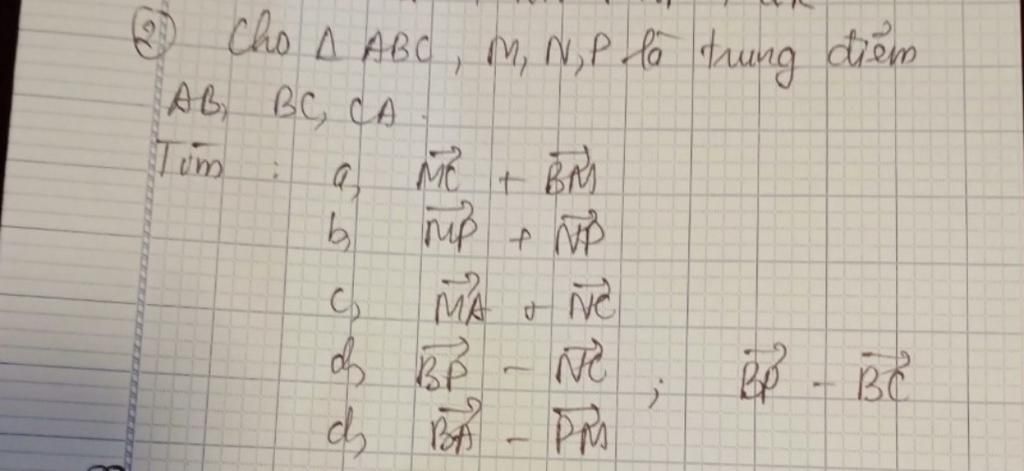 ② Cho Δ ABC, M, N, P là trung điểm
AB, BC, CA.
Tìm : a, $\overrightarrow{MC}$ + $\overrightarrow{BM}$
b, $\overrightarrow{MP}$ + $\overrightarrow{NP}$
c, $\overrightarrow{MA}$ + $\overrightarrow{NC}$
d, $\overrightarrow{BP}$ - $\overrightarrow{NC}$ ; $\overrightarrow{BP}$ - $\overrightarrow{BC}$
d, $\overrightarrow{BA}$ - $\overrightarrow{PM}$